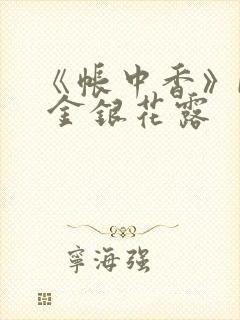 《帐中香》
金银花露
宁海强